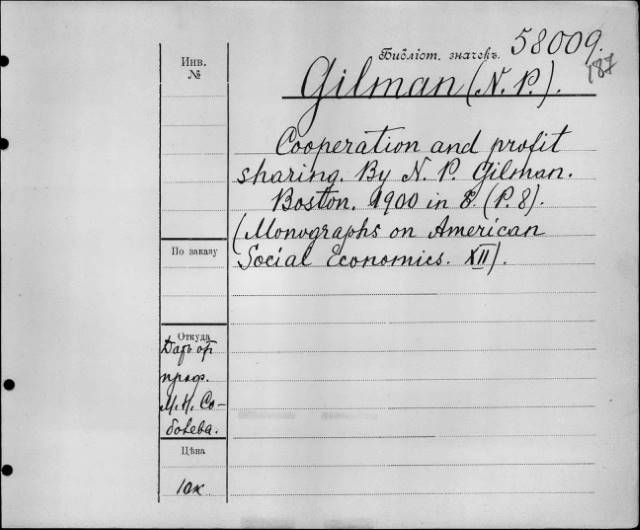 Библіот. значекъ 58009.
187
Инв.
№
Gilman (N. P.).
Cooperation and profit
sharing. By N. P. Gilman.
Boston. 1900 in 8. (P. 8).
(Monographs on American
Social Economics. XII).
По заказу
Откуда
Даръ от
проф.
М. Н. Со-
болева.
Цѣна
10к